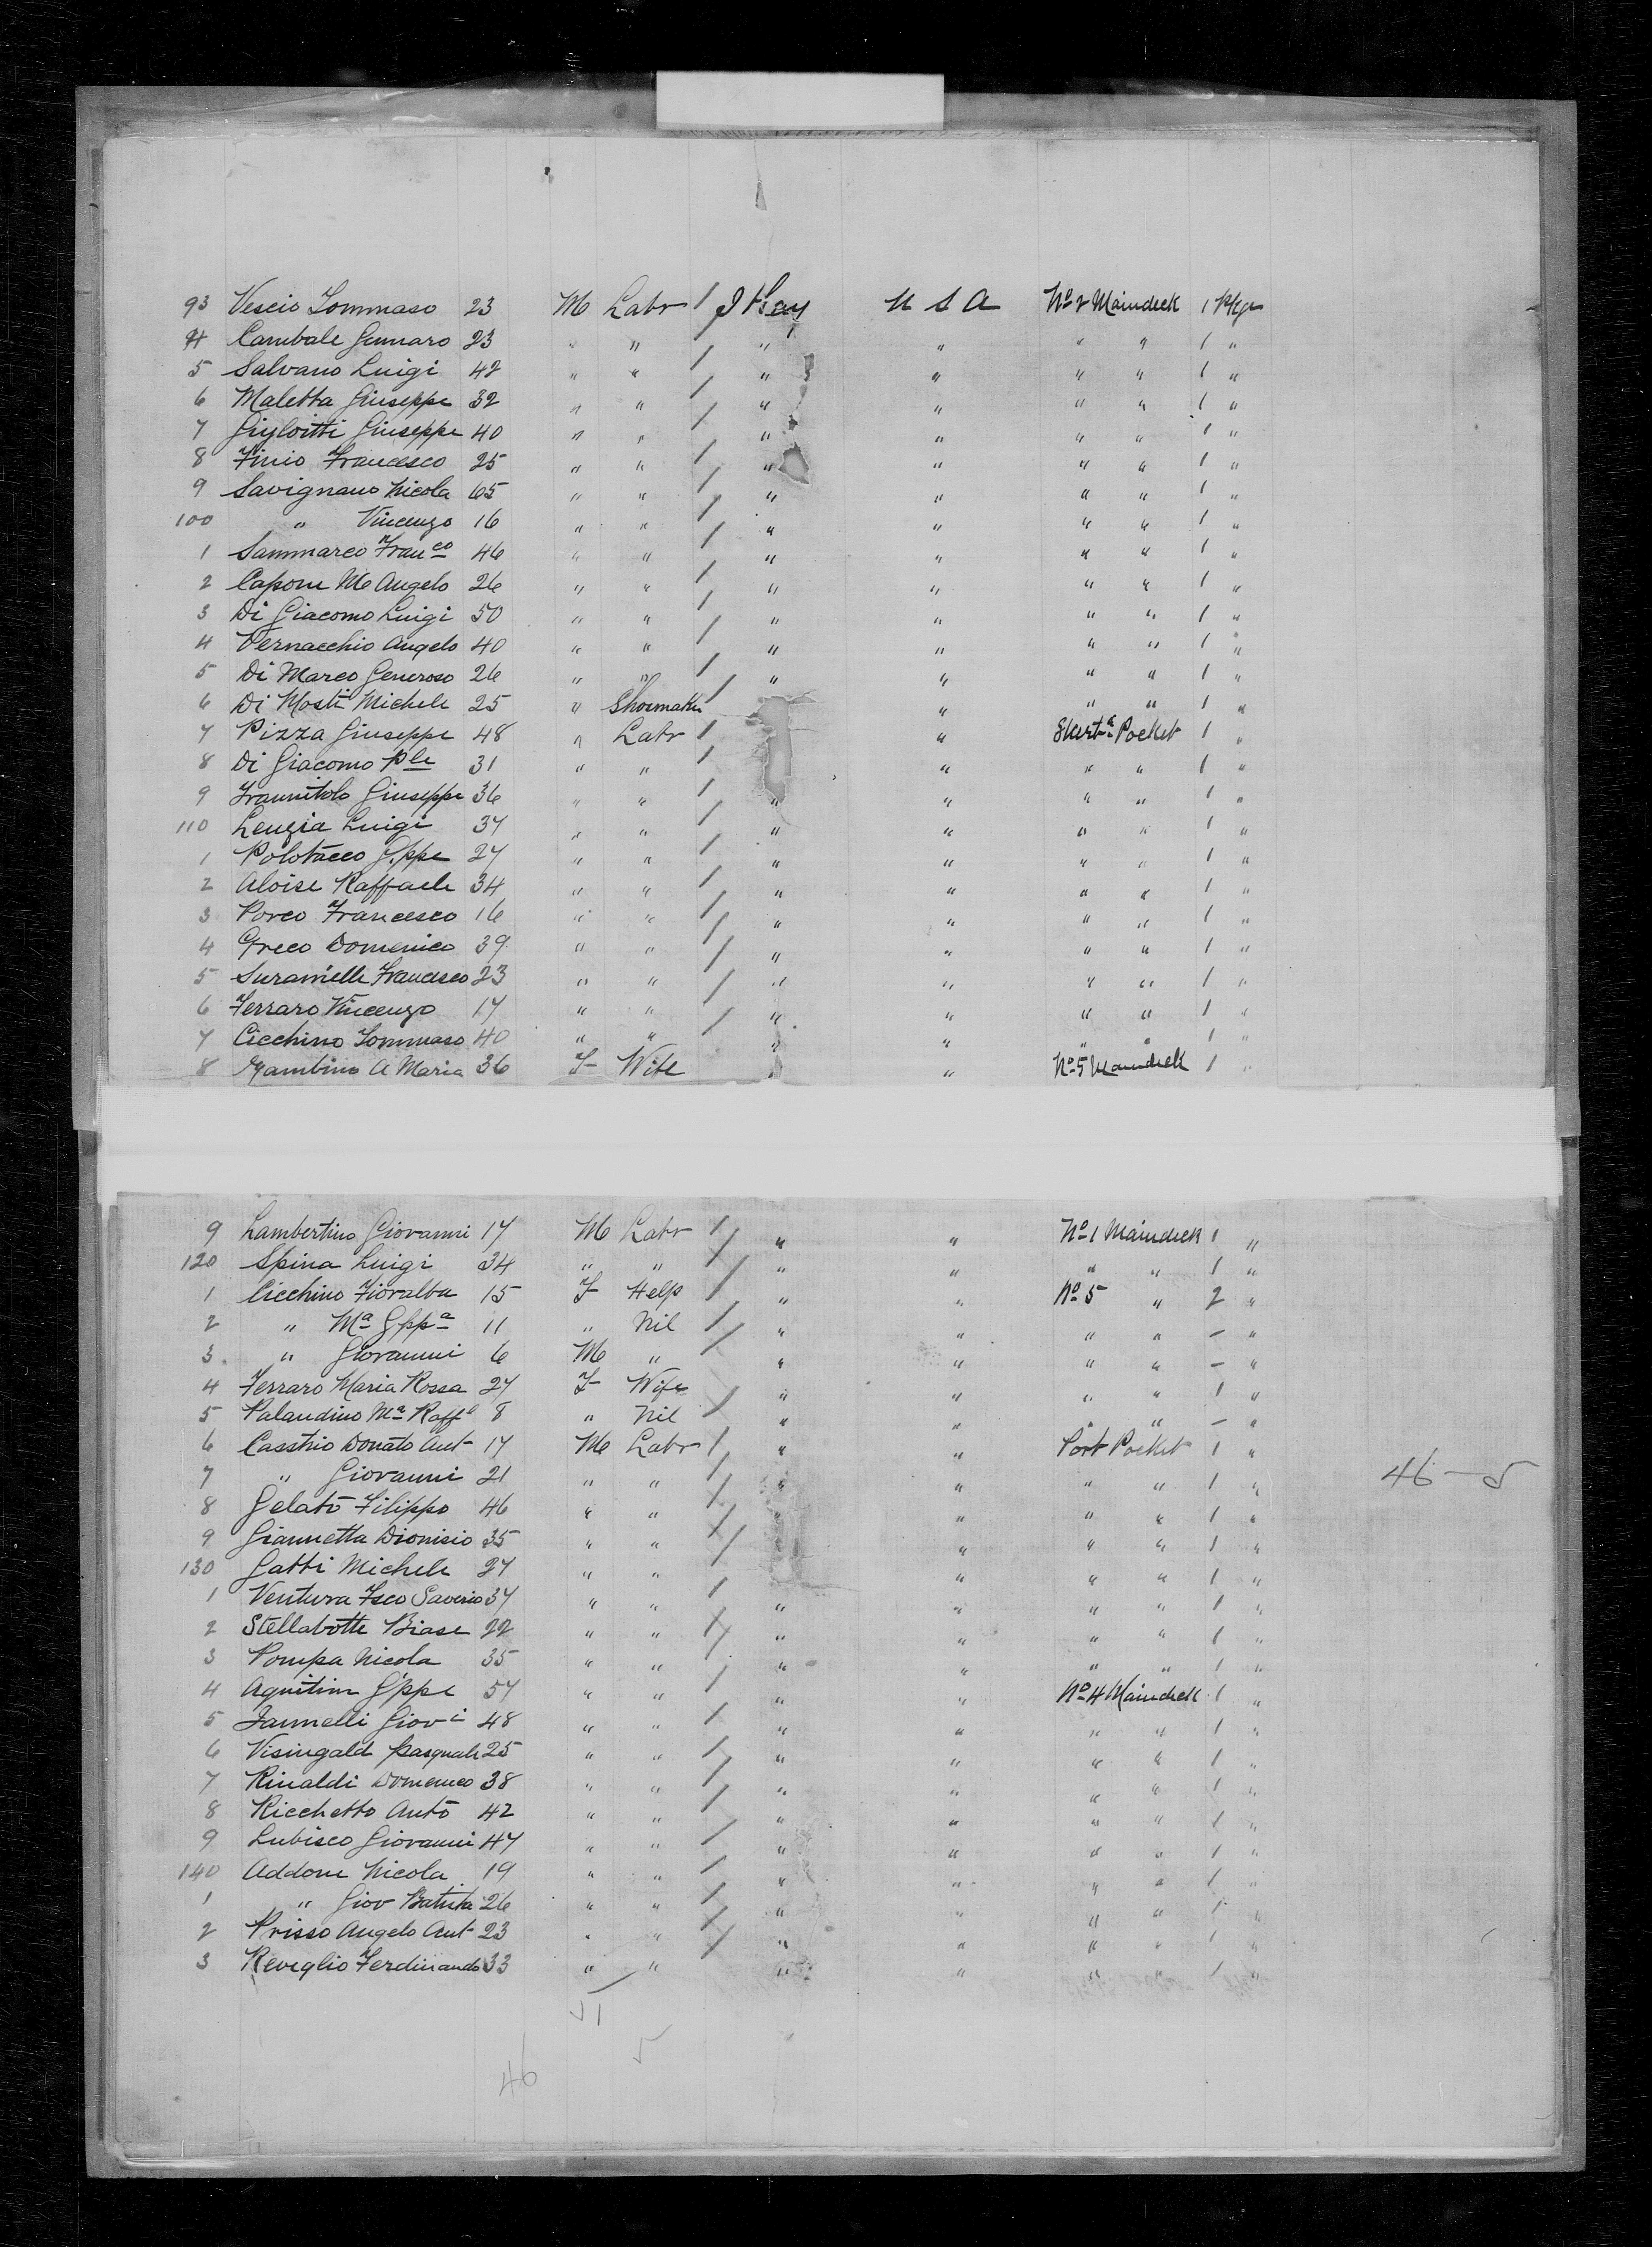 93 Vescio Tommaso 23 M Labr / Italy U S A No 2 Maindeck 1 Pkge
94 Cambale Gennaro 23 " " / " " " " 1 "
5 Salvano Luigi 42 " " / " " " " 1 "
6 Maletta Giuseppe 32 " " / " " " " 1 "
7 Gigliotti Giuseppe 40 " " / " " " " 1 "
8 Finio Francesco 25 " " / " " " " 1 "
9 Savignano Nicola 65 " " / " " " " 1 "
100 " Vincenzo 16 " " / " " " " 1 "
1 Sammarco Franco 46 " " / " " " " 1 "
2 Capone M Angelo 26 " " / " " " " 1 "
3 Di Giacomo Luigi 50 " " / " " " " 1 "
4 Vernacchio Angelo 40 " " / " " " " 1 "
5 Di Marco Generoso 26 " " / " " " " 1 "
6 Di Mosti Michele 25 " Shoemaker / " " " 1 "
7 Pizza Giuseppe 48 " Labr / " Pocket 1 "
8 Di Giacomo Ple 31 " " / " " " 1 "
9 Frannitolo Giuseppe 36 " " / " " " " 1 "
110 Lenzia Luigi 37 " " / " " " " 1 "
1 Polotacco G.ppe 27 " " / " " " " 1 "
2 Aloise Raffaele 34 " " / " " " " 1 "
3 Porco Francesco 16 " " / " " " " 1 "
4 Greco Domenico 39 " " / " " " " 1 "
5 Suranielle Francesco 23 " " / " " " " 1 "
6 Ferraro Vincenzo 17 " " / " " " " 1 "
7 Cicchino Tommaso 40 " " / " " " " 1 "
8 Gambino A Maria 36 F Wife " " No 5 Maindeck 1 "
9 Lambertino Giovanni 17 M Labr / " " No 1 Maindeck 1 "
120 Spina Luigi 34 " " / " " " " 1 "
1 Cicchino Fioralba 15 F Help / " " No 5 " 2 "
2 " Ma Gppa 11 " Nil / " " " " - "
3 " Giovanni 6 M " / " " " " - "
4 Ferraro Maria Rossa 27 F Wife " " " " 1 "
5 Palandino Ma Raffl 8 " Nil / " " " " - "
6 Casstrio Donato Ant 17 M Labr / " " Port Pocket 1 "
7 " Giovanni 21 " " / " " " " 1 " 46-5
8 Gelato Filippo 46 " " / " " " " 1 "
9 Giannetta Dionisio 35 " " / " " " 1 "
130 Gatti Michele 27 " " / " " " 1 "
1 Ventura Fsco Saverio 37 " " / " " " " 1 "
2 Stellabotte Biase 22 " " / " " " " 1 "
3 Pompa Nicola 35 " " / " " " " 1 "
4 Agnitini G'ppe 57 " " / " " No 4 Maindeck 1 "
5 Jannelli Giovi 48 " " / " " " " 1 "
6 Visingald Pasquale 25 " " / " " " " 1 "
7 Rinaldi Domenico 38 " " / " " " " 1 "
8 Ricchetto Anto 42 " " / " " " " 1 "
9 Lubisco Giovanni 47 " " / " " " " 1 "
140 Addone Nicola 19 " " / " " " " 1 "
1 " Giov Batista 26 " " / " " " " 1 "
2 Prisso Angelo Ant 23 " " / " " " " 1 "
3 Reveglio Ferdinando 33 " " / " " " " 1 "
5
46